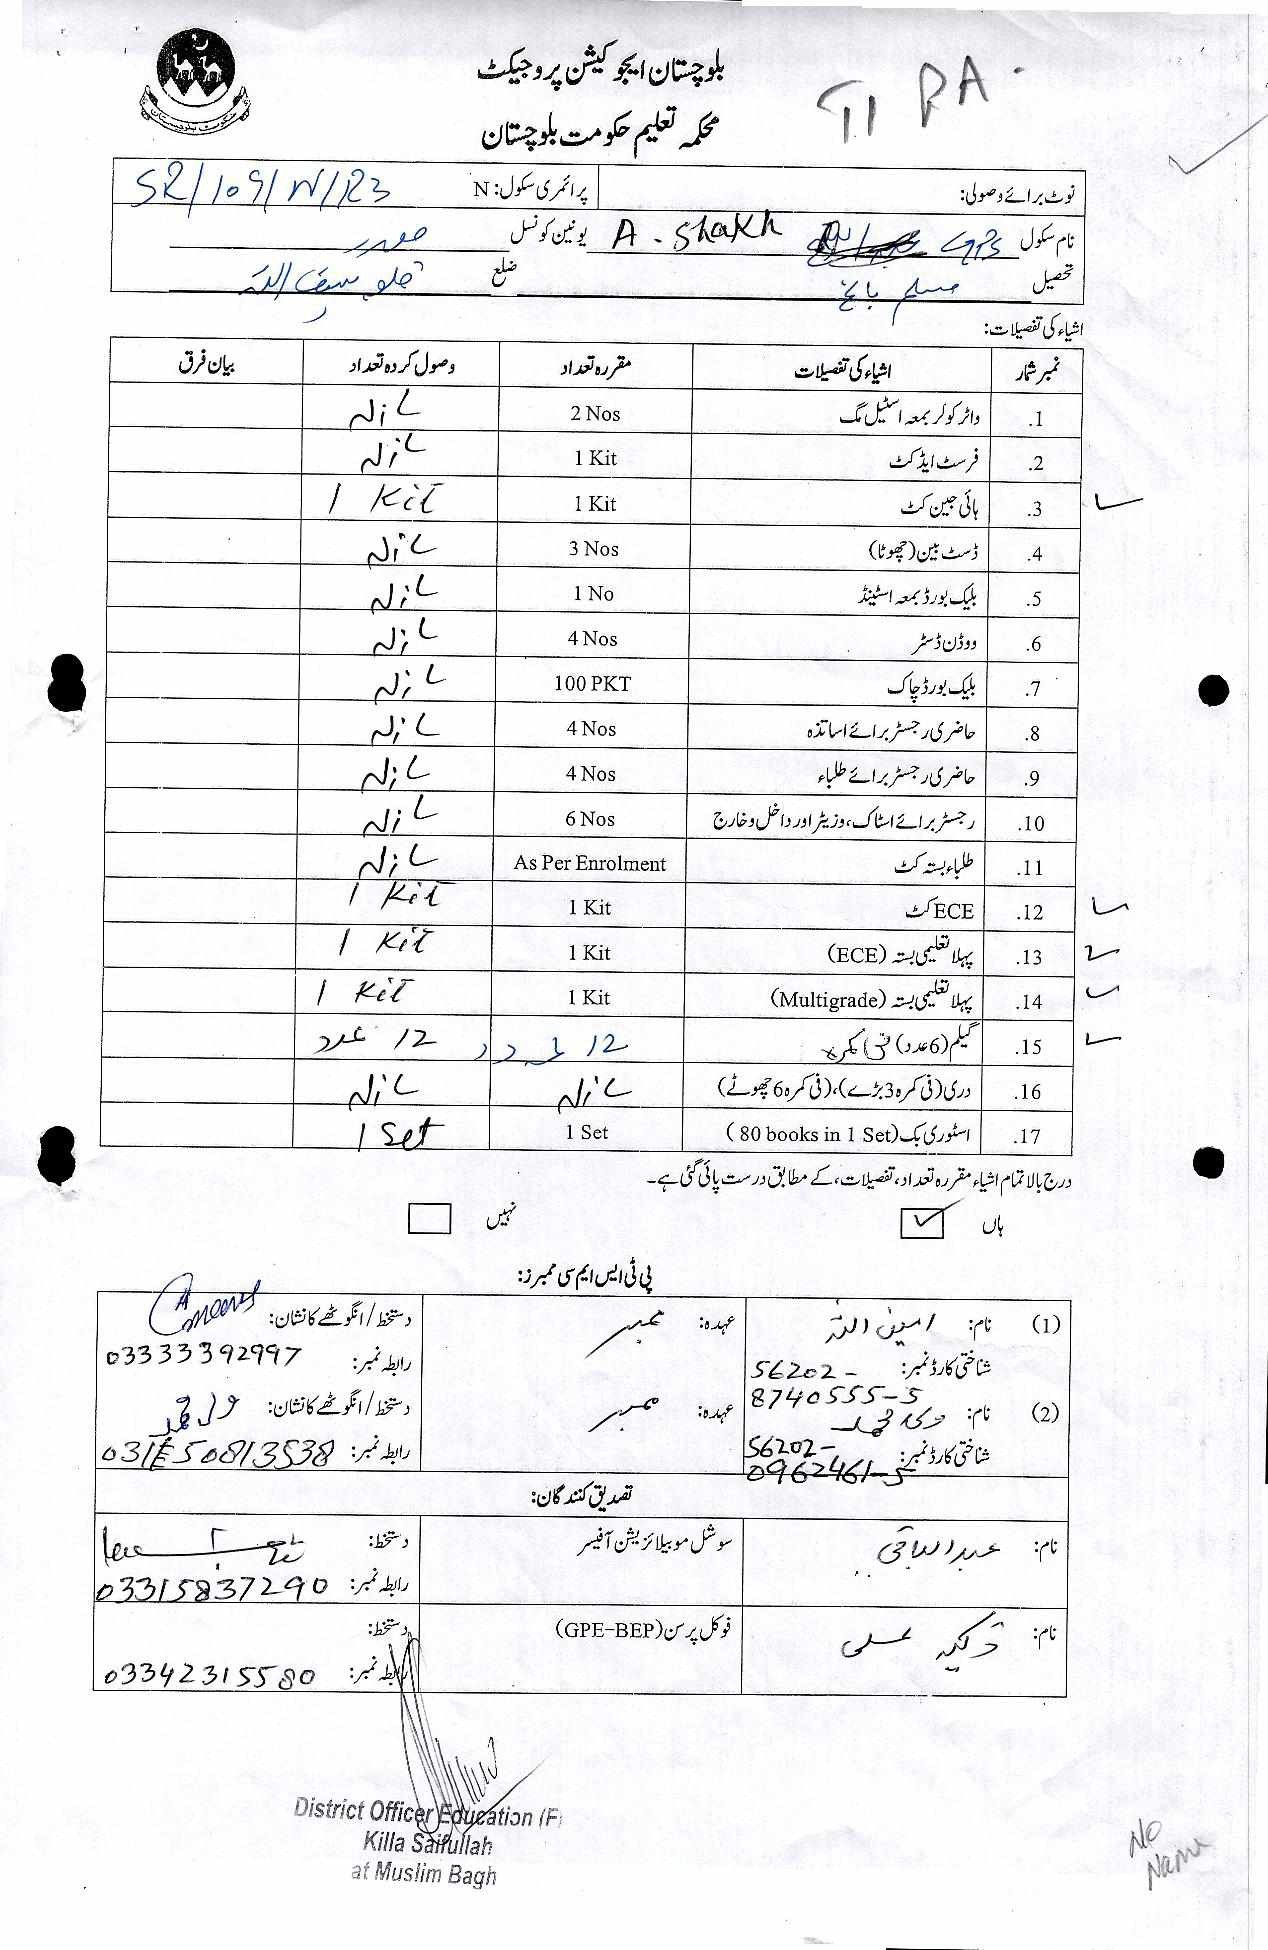 بلوچستان ایجوکیشن پروجیکٹ
محکمہ تعلیم حکومت بلوچستان
TI PA
نوٹ برائے وصولی: پرائمری سکول: N SR/109/N/R3
نام سکول GPS A. Shakh یونین کونسل صدر
تحصیل مسلم باغ ضلع قلعہ سیف اللہ
اشیاء کی تفصیلات:
نمبر شمار اشیاء کی تفصیلات مقررہ تعداد وصول کردہ تعداد بیان فرق
1. واٹر کولر بمعہ اسٹیل مگ 2 Nos Nil
2. فرسٹ ایڈ کٹ 1 Kit Nil
3. ہائی جین کٹ 1 Kit 1 Kit
4. ڈسٹ بین (چھوٹا) 3 Nos Nil
5. بلیک بورڈ بمعہ اسٹینڈ 1 No Nil
6. ووڈن ڈسٹر 4 Nos Nil
7. بلیک بورڈ چاک 100 PKT Nil
8. حاضری رجسٹر برائے اساتذہ 4 Nos Nil
9. حاضری رجسٹر برائے طلباء 4 Nos Nil
10. رجسٹر برائے اسٹاک، وزیٹر اور داخل و خارج 6 Nos Nil
11. طلباء بستہ کٹ As Per Enrolment Nil
12. ECE کٹ 1 Kit 1 Kit
13. پہلا تعلیمی بستہ (ECE) 1 Kit 1 Kit
14. پہلا تعلیمی بستہ (Multigrade) 1 Kit 1 Kit
15. گیلم (6 عدد) فی کمرہ 12 عدد 12 عدد
16. دری (فی کمرہ 3 بڑے)، (فی کمرہ 6 چھوٹے) Nil Nil
17. اسٹوری بک (80 books in 1 Set) 1 Set 1 Set
درج بالا تمام اشیاء مقررہ تعداد، تفصیلات، کے مطابق درست پائی گئی ہے۔
ہاں ✓ نہیں
پی ٹی ایس ایم سی ممبرز:
(1) نام: امین اللہ عہدہ: ممبر دستخط/انگوٹھے کا نشان:
شناختی کارڈ نمبر: 56202-8740555-5 رابطہ نمبر: 03333392997
(2) نام: ولی محمد عہدہ: ممبر دستخط/انگوٹھے کا نشان: ولی محمد
شناختی کارڈ نمبر: 56202-0962461-5 رابطہ نمبر:
تصدیق کنندگان:
نام: عبدالباقی سوشل موبیلائزیشن آفیسر دستخط:
رابطہ نمبر: 03315837290
نام: علی فوکل پرسن (GPE-BEP) دستخط:
رابطہ نمبر: 03342315580
District Officer Education (F)
Killa Saifullah
at Muslim Bagh
No
Name